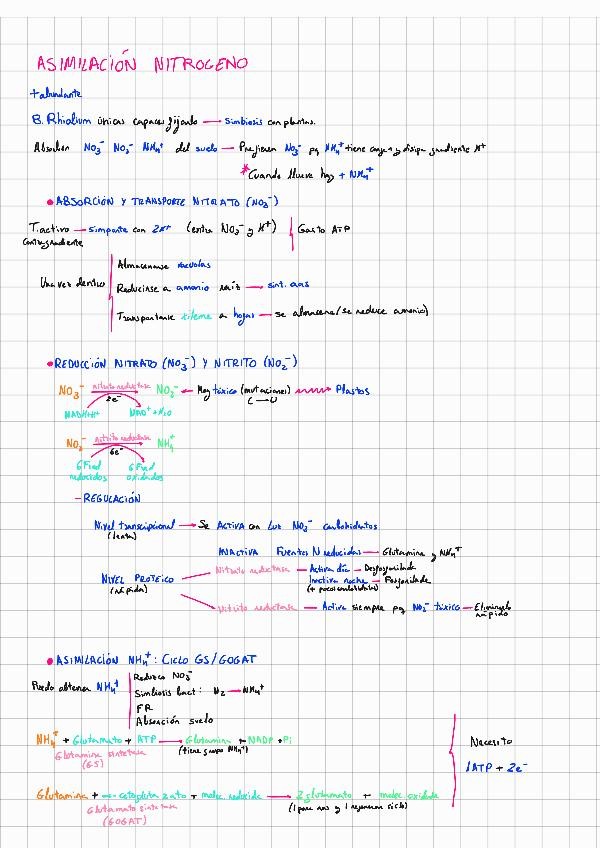 ASIMILACIÓN NITROGENO
+ abundante
B. Rhiolium únicas capaces fijarlo → Simbiosis con plantas.
Absorben NO₃⁻ NO₂⁻ NH₄⁺ del suelo → Prefieren NO₃⁻ pq NH₄⁺ tiene carga + y disipa gradiente H⁺
* Cuando llueve hay + NH₄⁺
• ABSORCIÓN Y TRANSPORTE NITRATO (NO₃⁻)
T. activo → simporte con 2H⁺ (entra NO₃⁻ y H⁺) | Gasto ATP
Contragradiente
Almacenarse vacuolas
Una vez dentro | Reducirse a amonio raíz → sint. aas
Transportarse xilema a hojas → se almacena/(se reduce amonio)
• REDUCCIÓN NITRATO (NO₃⁻) Y NITRITO (NO₂⁻)
NO₃⁻ nitrato reductasa NO₂⁻ ← Muy tóxico (mutaciones) → Plastos
2e⁻ C → U
NADH+H⁺ NAD⁺ + H₂O
NO₂⁻ nitrito reductasa NH₄⁺
6e⁻
6 Fxd reducidos 6 Fxd oxidados
- REGULACIÓN
Nivel transcripcional → Se ACTIVA con Luz NO₃⁻ carbohidratos
(lenta)
INACTIVA Fuentes N reducidas — Glutamina y NH₄⁺
NIVEL PROTEICO Nitrato reductasa — Activa día — Desfosforilada
(rápida) Inactiva noche — Fosforilada
(+ pocos carbohidratos)
Nitrito reductasa — Activa siempre pq NO₂⁻ tóxico — Eliminarlo rápido
• ASIMILACIÓN NH₄⁺: CICLO GS/GOGAT
Puedo obtener NH₄⁺ | Reduzco NO₃⁻
Simbiosis bact: N₂ → NH₄⁺
FR
Absorción suelo
NH₄⁺ + Glutamato + ATP → Glutamina + NADP + Pi
Glutamina sintetasa (tiene grupo NH₄⁺)
(GS)
Necesito
1ATP + 2e⁻
Glutamina + α-cetoglutarato + molec reducida → 2 glutamato + molec oxidada
Glutamato sintasa (1 para aas y 1 regenerar ciclo)
(GOGAT)